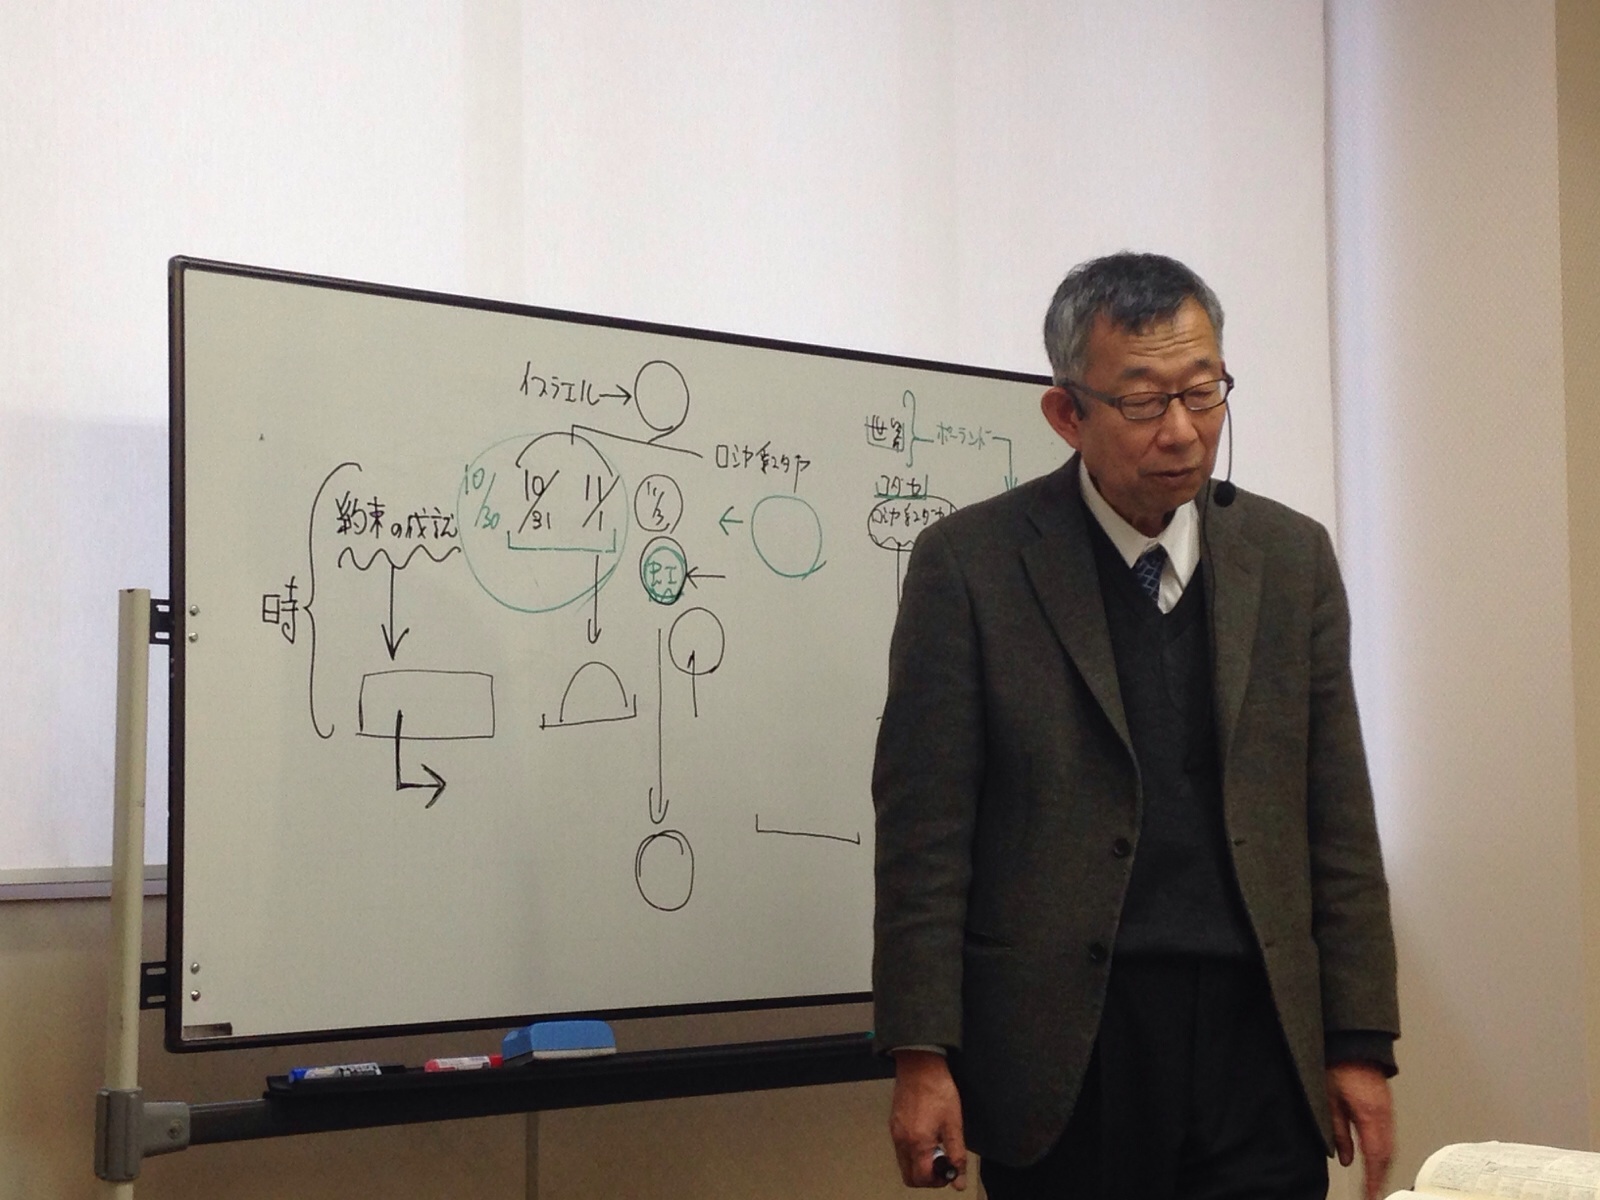 イスラエル
ロシヤ系ユダヤ
世界
ポーランド
コダヤ
ロシヤ系ユダヤ
10/30
10/31
11/1
11/3
約束の成就
虹
時